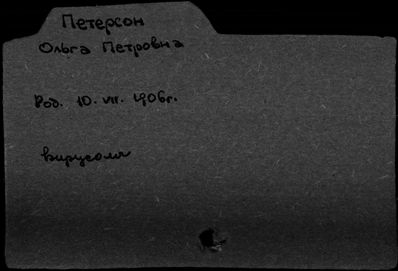 Петерсон
Ольга Петровна
Род. 10. VII. 1906г.
вирусолог